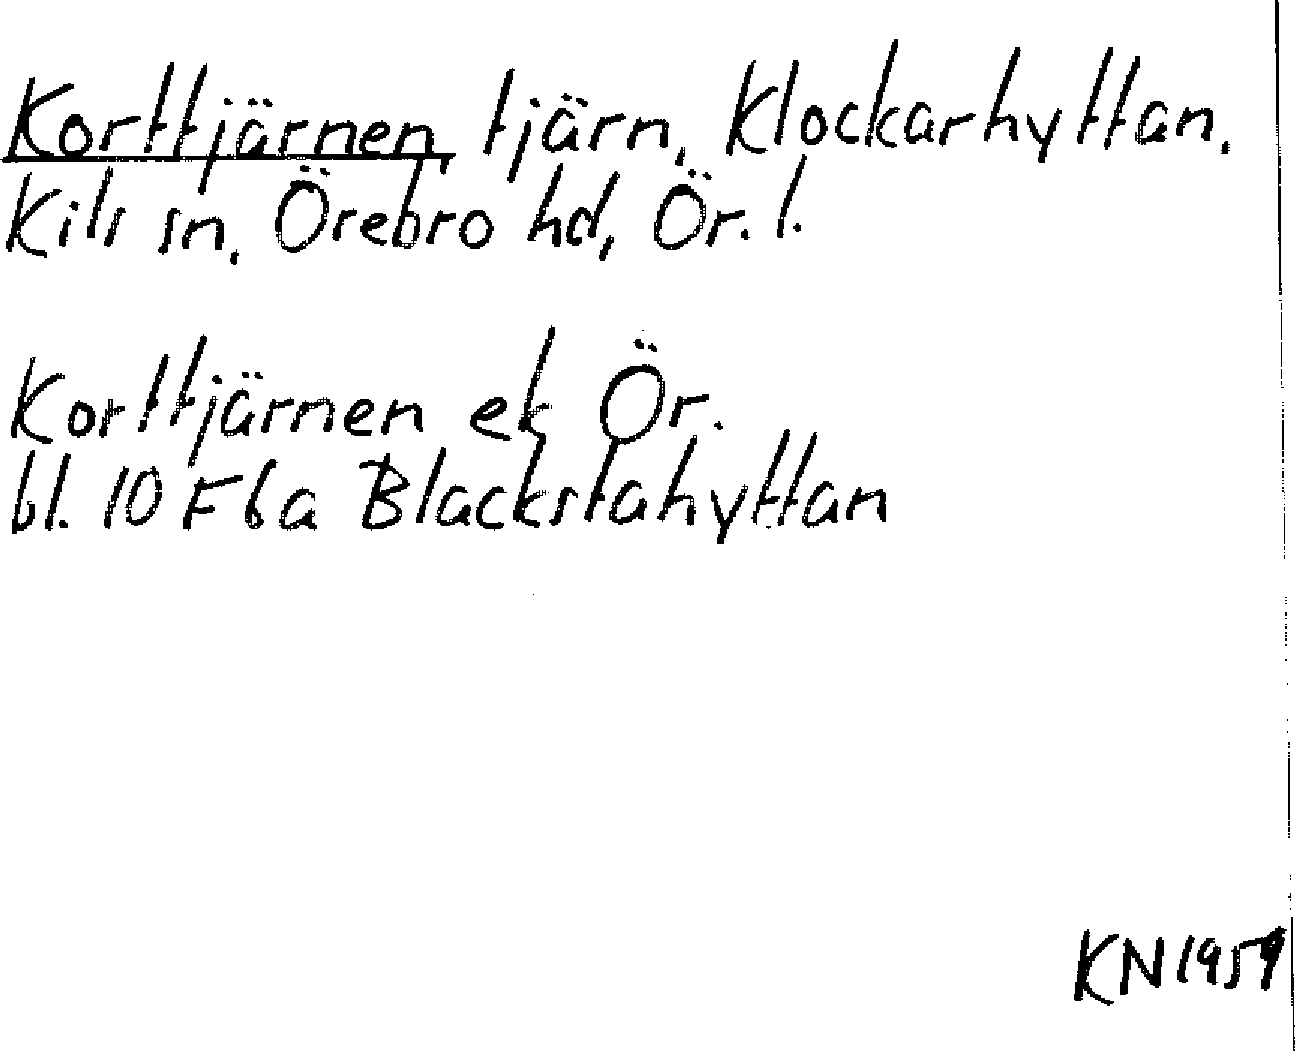 Korttjärnen, tjärn, Klockarhyttan,
Kils sn, Örebro hd, Ör. l.
Korttjärnen ek Ör.
bl. 10 F 6a Blackstahyttan
KN 1959